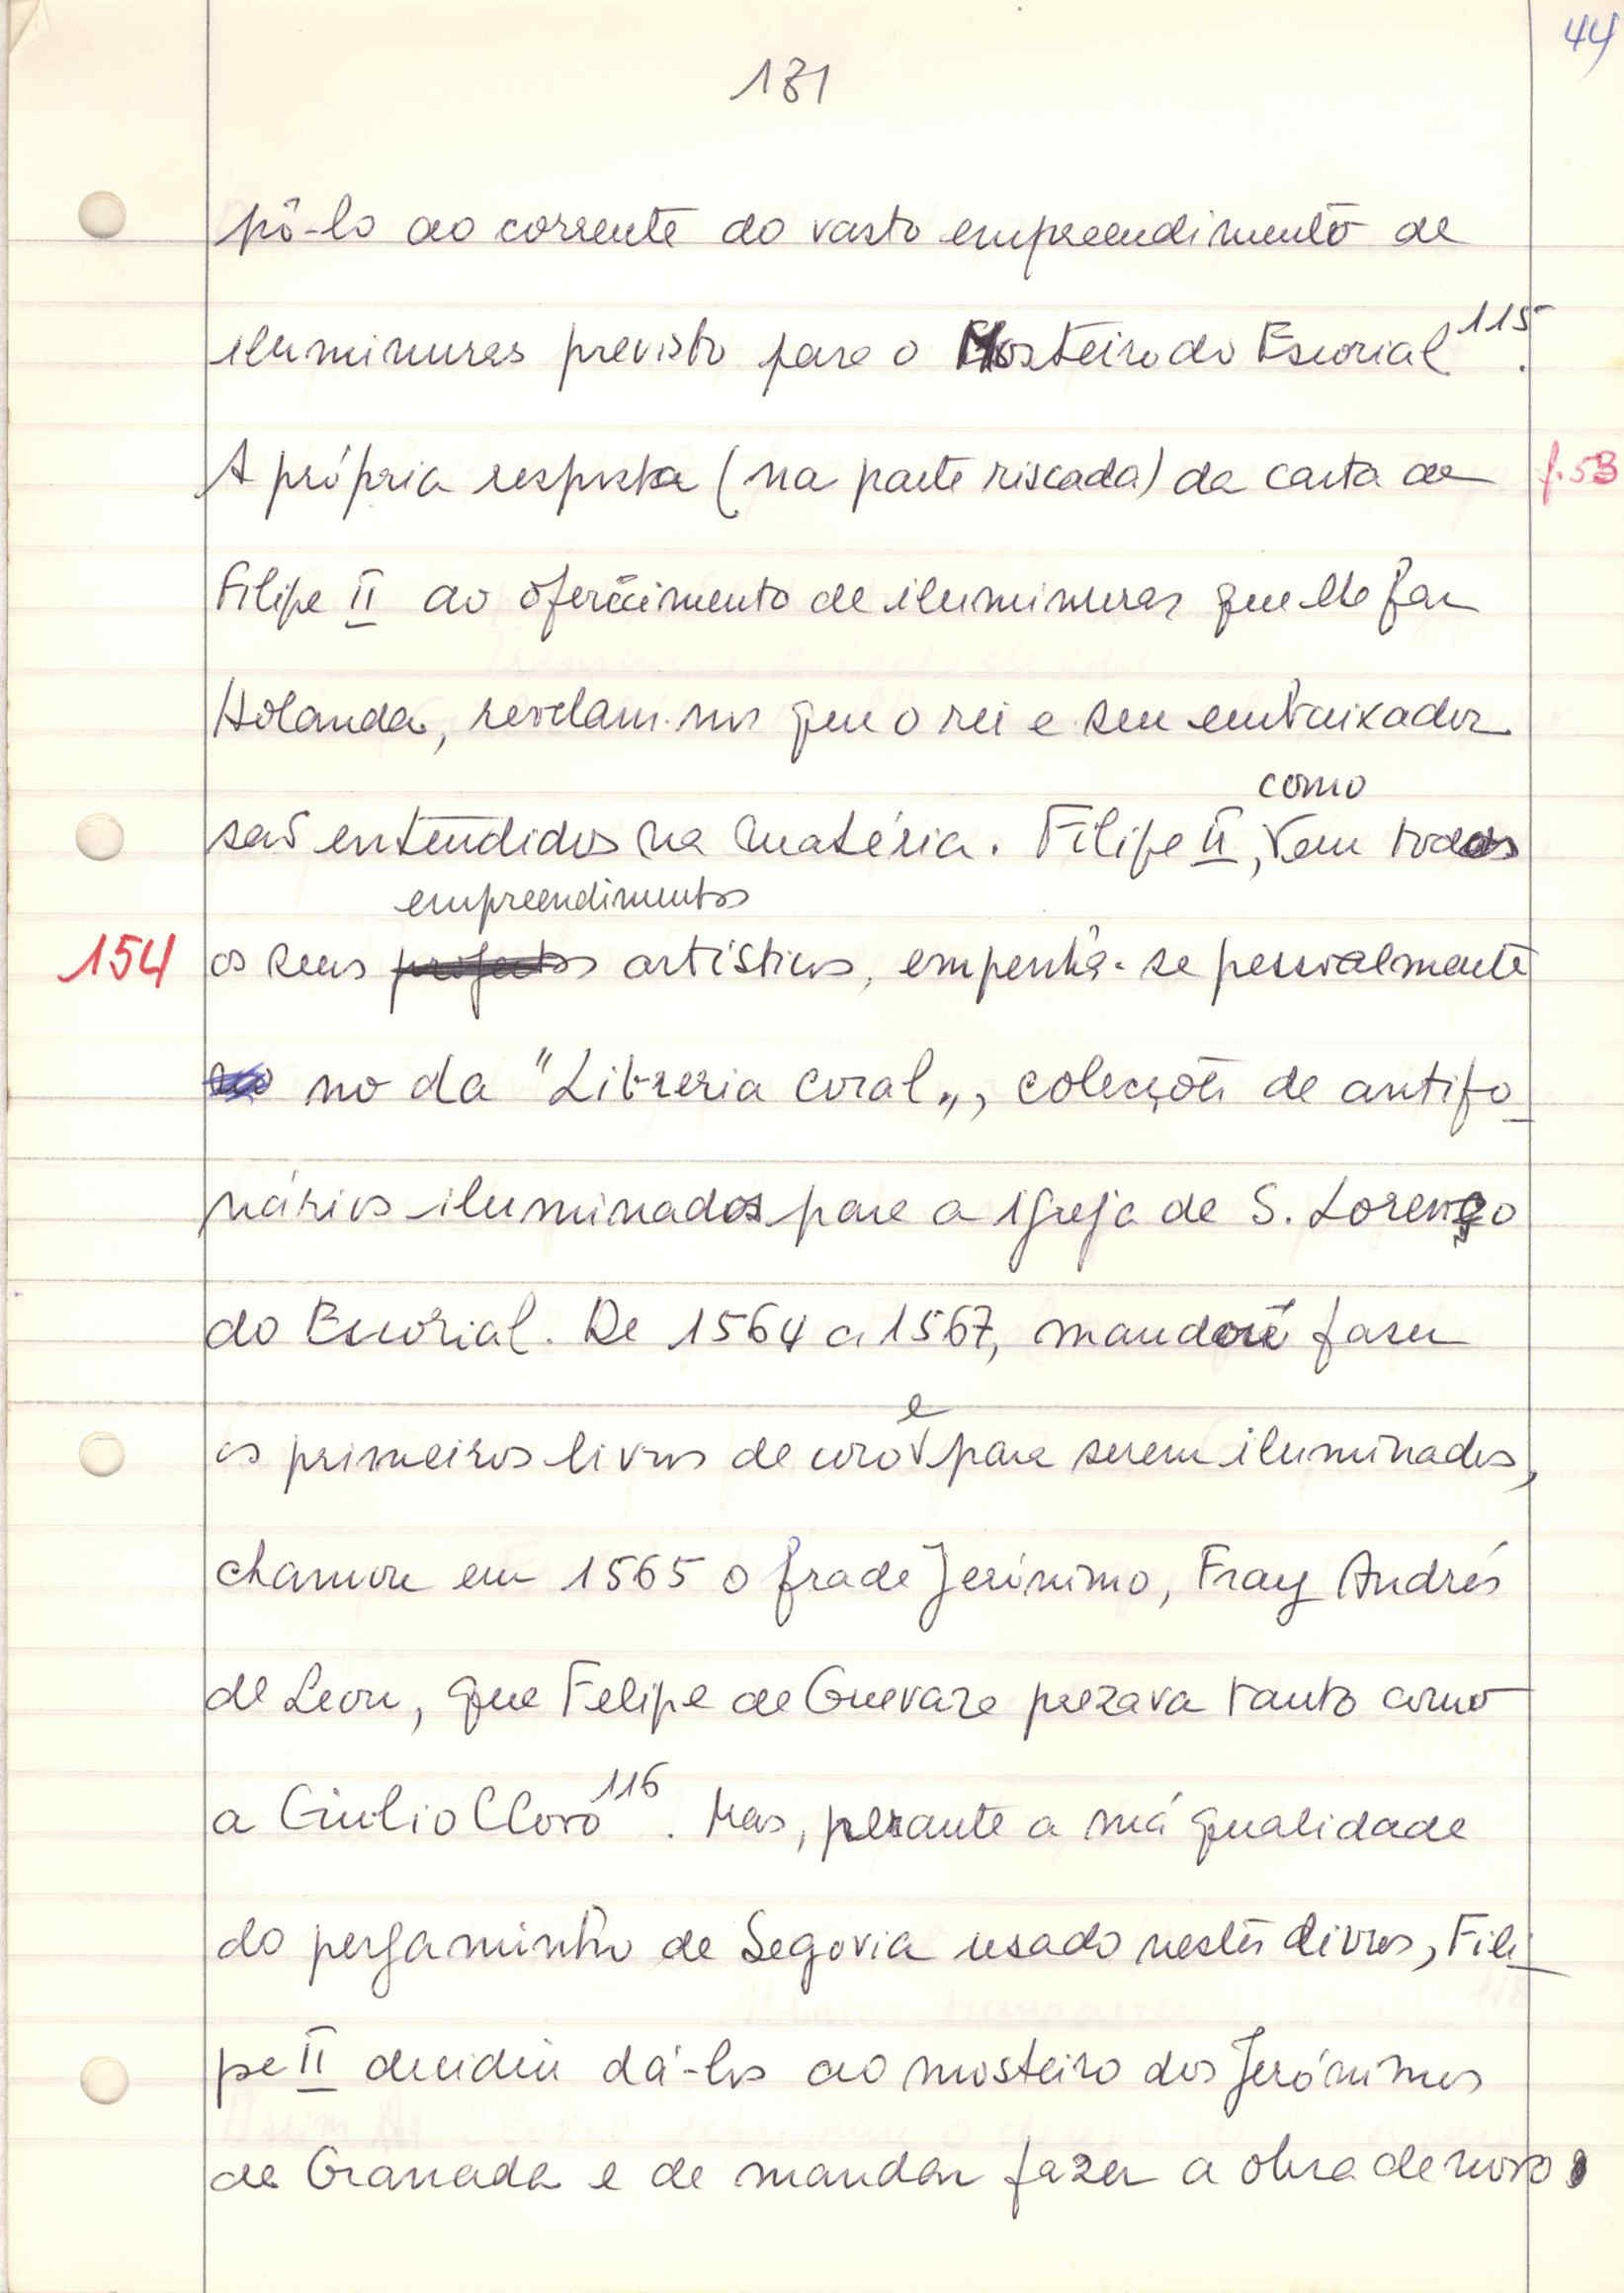 44
131
pô-lo ao corrente do vasto empreendimento de
iluminuras previsto para o Mosteiro do Escorial 115.
A própria resposta (na parte riscada) da carta de
f. 53
Filipe II ao oferecimento de iluminuras que lhe faz
Holanda, revelam-nos que o rei e seu embaixador
são entendidos na matéria. Filipe II, como em todos
154
os seus projectos empreendimentos artísticos, empenha-se pessoalmente
no da "Libreria coral„, colecções de antifo-
nários iluminados para a igreja de S. Lorenço
do Escorial. De 1564 a 1567, mandou fazer
os primeiros livros de coro e para serem iluminados,
chamou em 1565 o frade Jerónimo, Fray Andrés
de Leon, que Felipe de Guevara prezava tanto como
a Giulio Clovo 116. Mas, perante a má qualidade
do pergaminho de Segovia usado nestes livros, Fili-
pe II decidiu dá-los ao mosteiro dos Jerónimos
de Granada e de mandar fazer a obra de novo,